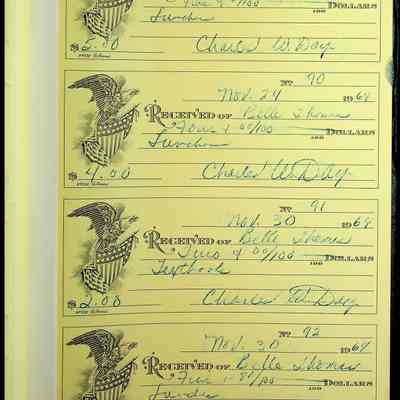 Five & 00/100 DOLLARS
Lunches
$ 5.00 Charles W. Day
No 90
Nov. 24 1969
RECEIVED OF Belle Thomas
Four & 00/100 DOLLARS
Lunches
$ 4.00 Charles W. Day
No 91
Nov. 30 1969
RECEIVED OF Belle Thomas
Two & 00/100 DOLLARS
Textbook
$ 2.00 Charles W. Day
No 92
Nov. 30 1969
RECEIVED OF Belle Thomas
DOLLARS